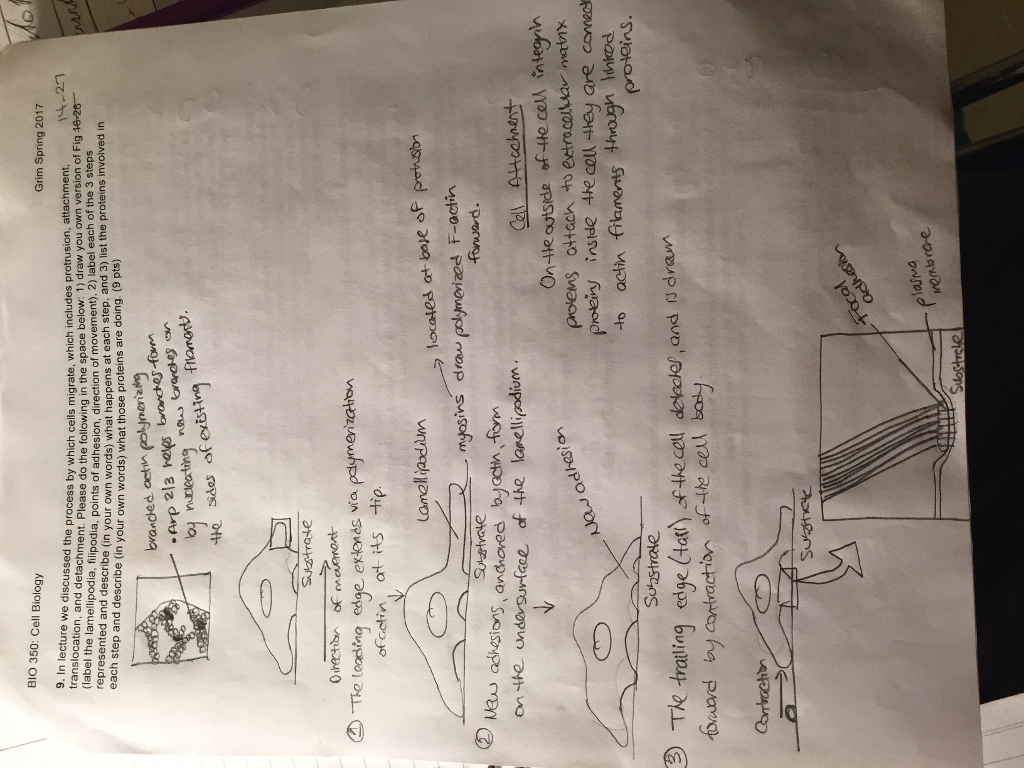 BIO 350: Cell Biology
Grim Spring 2017
9. In lecture we discussed the process by which cells migrate, which includes protrusion, attachment,
translocation, and detachment. Please do the following in the space below: 1) draw you own version of Fig 16-26 14-27
(label the lamellipodia, fillipodia, points of adhesion, direction of movement), 2) label each of the 3 steps
represented and describe (in your own words) what happens at each step, and 3) list the proteins involved in
each step and describe (in your own words) what those proteins are doing. (9 pts)
branched actin polymerizing
• Arp 2/3 helps branches form
by nucleating new branches on
the sides of existing filaments.
Substrate
Direction of movement
① The leading edge extends via polymerization
of actin at its tip.
Lamellipodium
located at base of protrusion
myosins draw polymerized F-actin
forward.
Substrate
② New adhesions, anchored by actin form
on the undersurface of the lamellipodium.
Cell Attachment
On the outside of the cell integrin
proteins attach to extracellular matrix
proteins inside the cell they are connect
to actin filaments through linked
proteins.
New adhesion
Substrate
③ The trailing edge (tail) of the cell detaches, and is drawn
forward by contraction of the cell body.
Contraction
Substrate
Focal adhesion
plasma membrane
Substrate